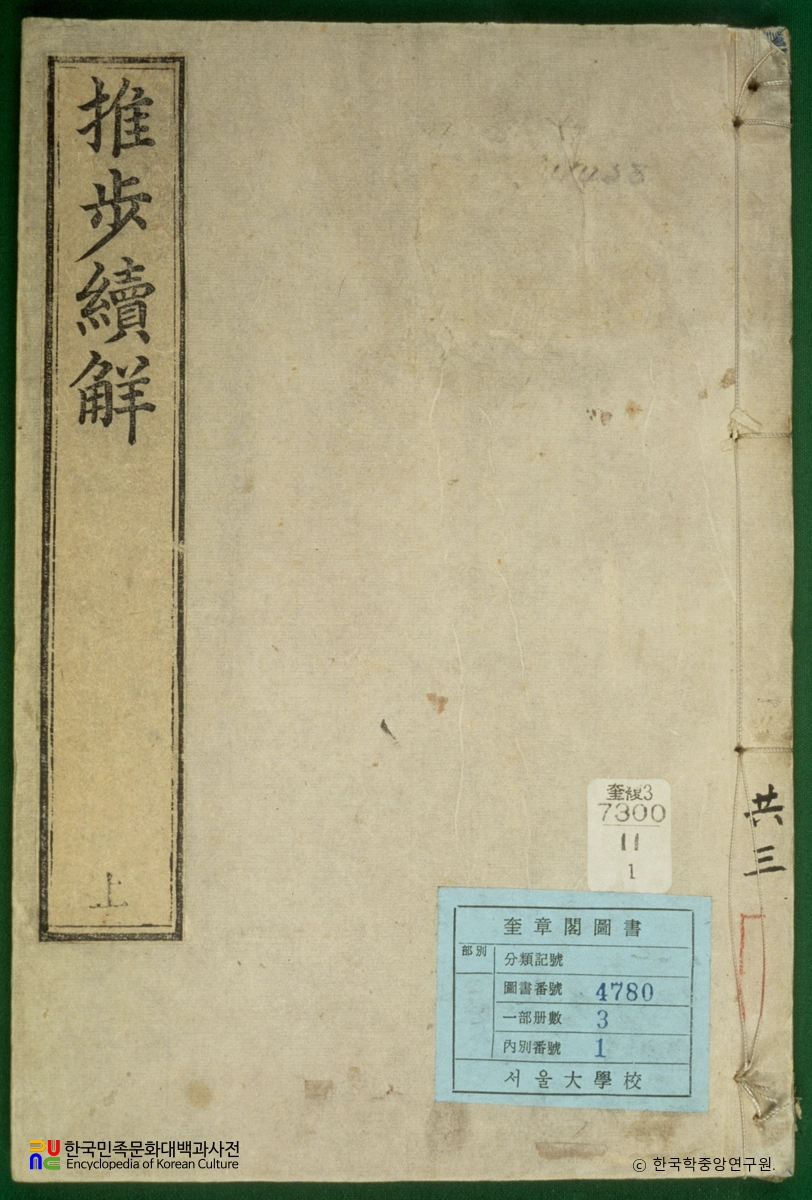 推步續解
上
共三
奎緩3
7300
11
1
奎章閣圖書
部別
分類記號
圖書番號 4780
一部册數 3
內別番號 1
서울大學校
한국민족문화대백과사전
Encyclopedia of Korean Culture
ⓒ 한국학중앙연구원.